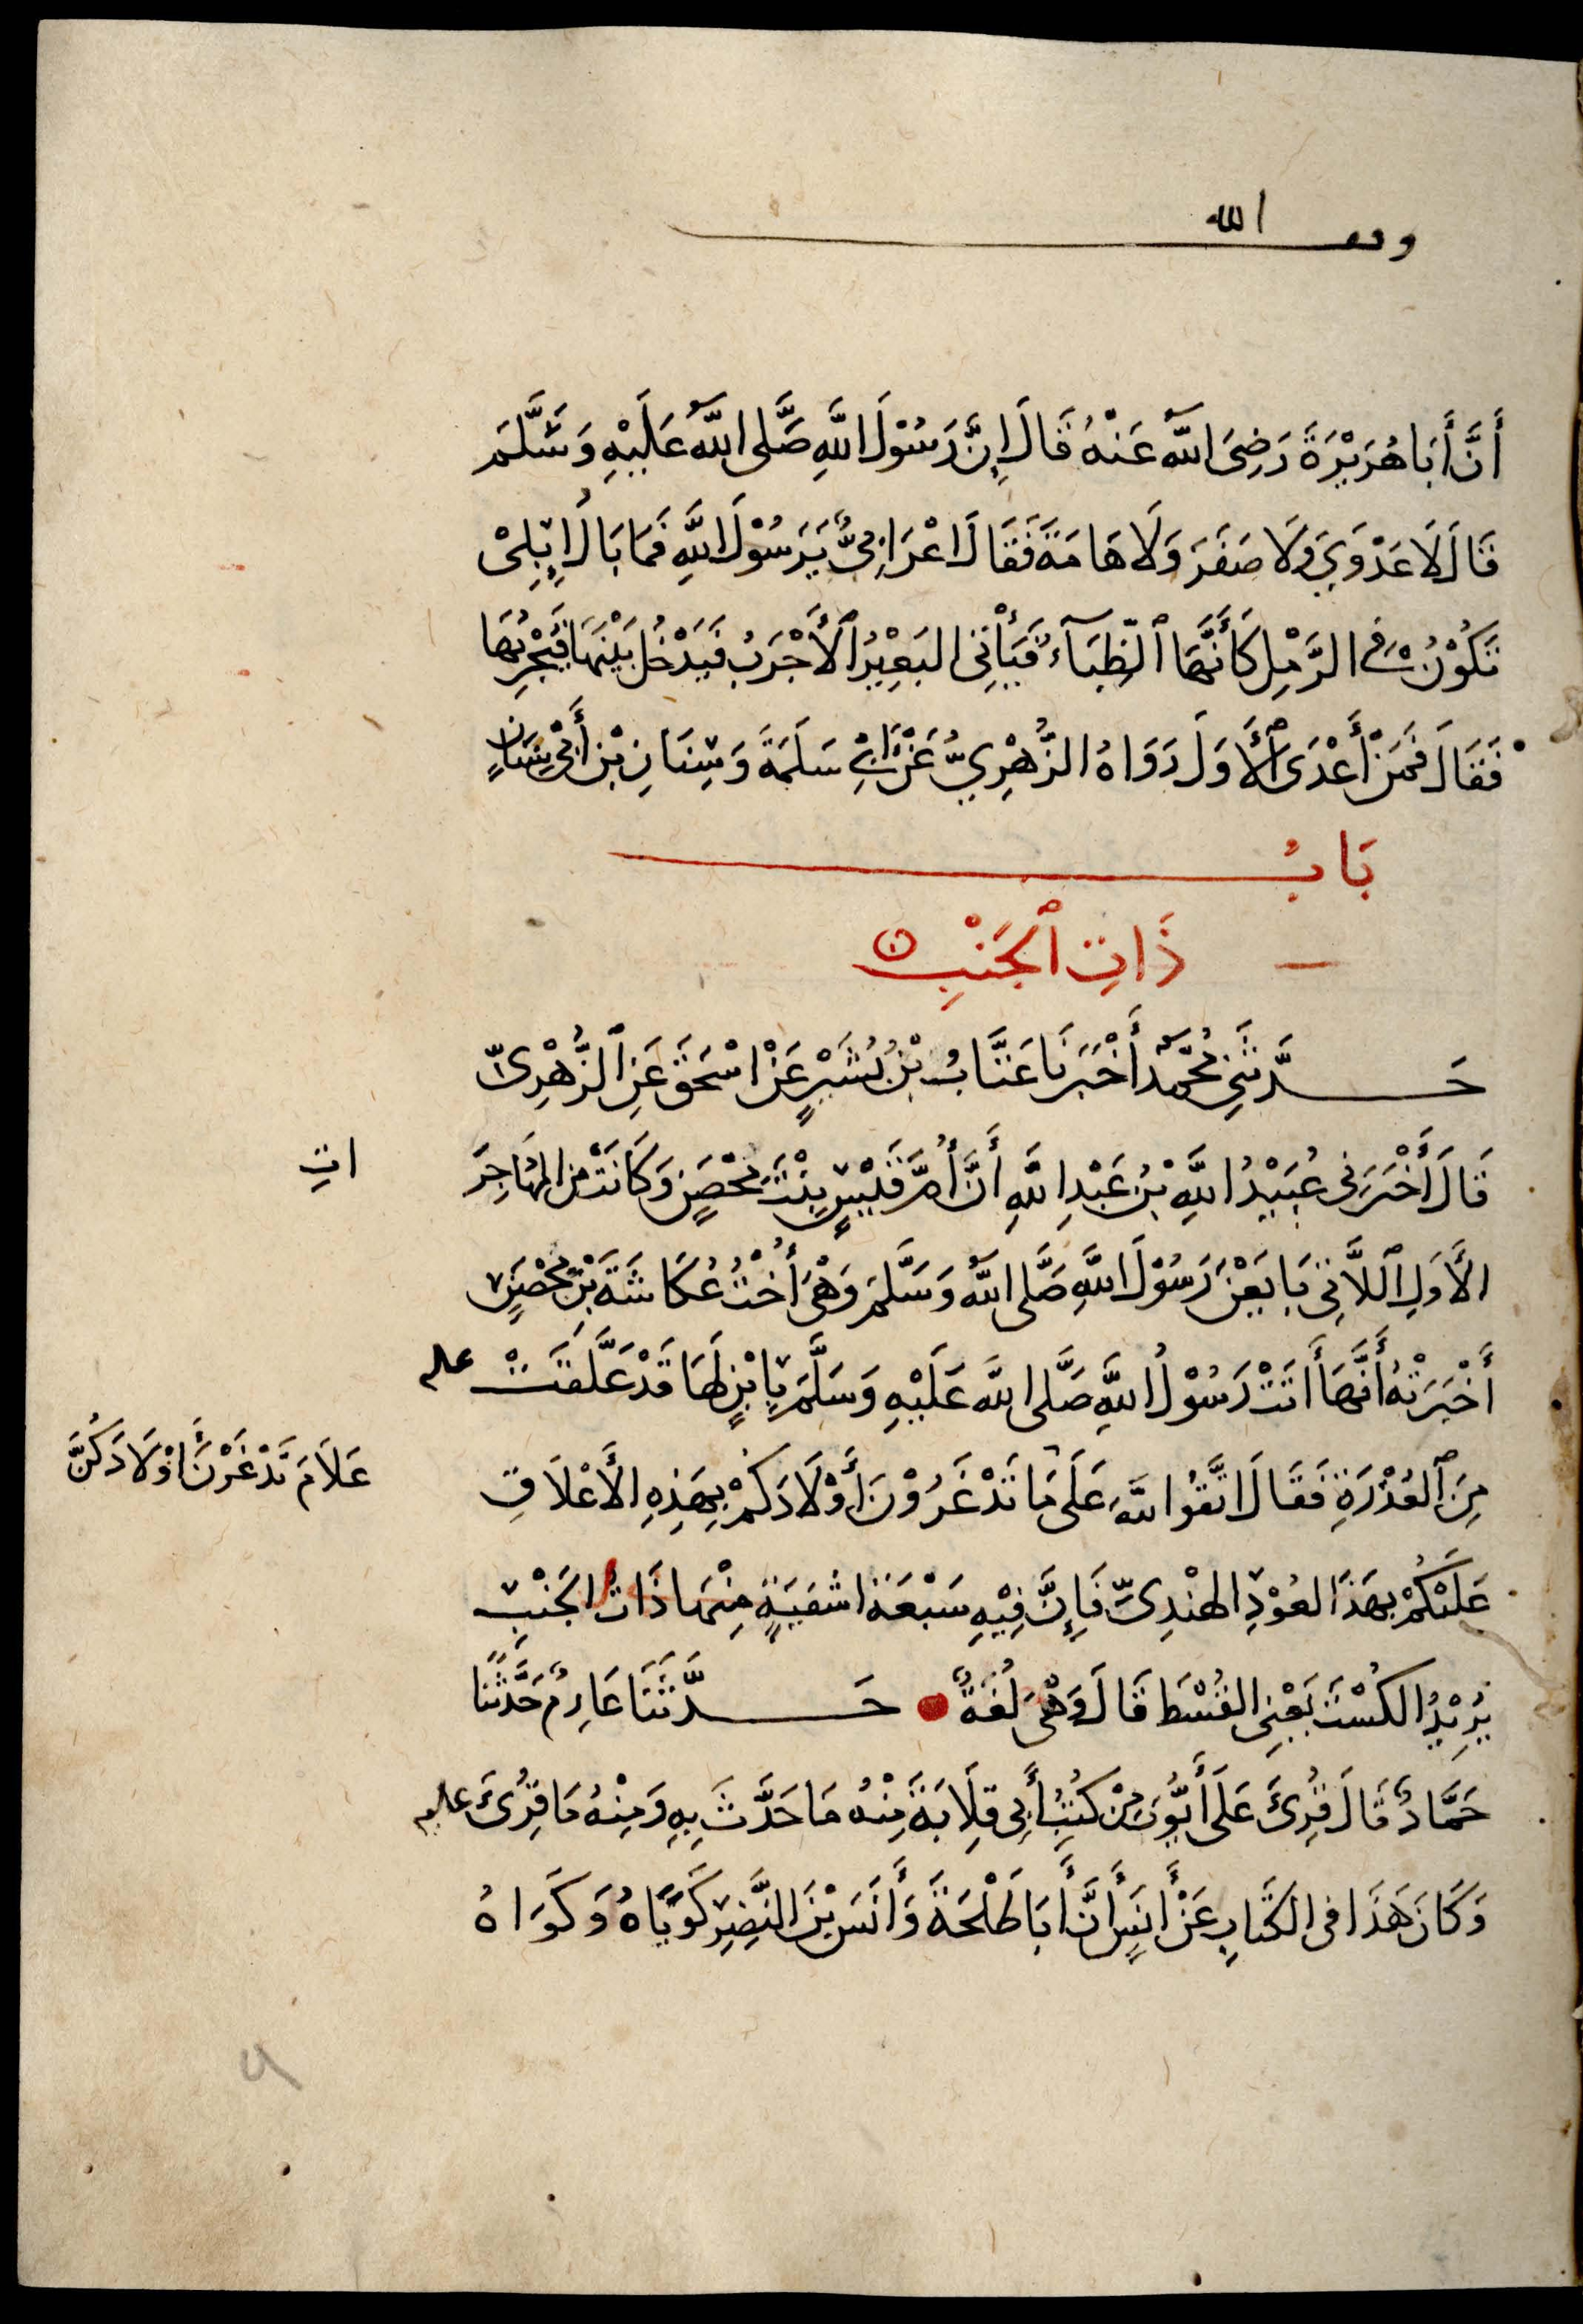 وقف الله
أَنَّ أَبَا هُرَيْرَةَ رَضِيَ اللَّهُ عَنْهُ قَالَ إِنَّ رَسُوْلَ اللَّهِ صَلَّى اللَّهُ عَلَيْهِ وَسَلَّمَ
قَالَ لَا عَدْوَى وَلَا صَفَرَ وَلَا هَامَةَ فَقَالَ اعْرَابِيٌّ يَرَسُوْلَ اللَّهِ فَمَا بَالُ إِبِلِىْ
تَكُوْنُ فِى الرَّمْلِ كَأَنَّهَا ٱلظِّبَآءُ فَيَأْتِى البَعِيْرُ ٱلْأَجْرَبُ فَيَدْخُلُ بَيْنَهَا فَيُجْرِبُهَا
فَقَالَ فَمَنْ أَعْدَى ٱلْأَوَلَ رَوَاهُ الزُّهْرِيُّ عَنْ أَبِي سَلَمَةَ وَسِنَانِ بْنِ أَبِىْ سِنَانٍ
بَابُ
ذَاتِ ٱلجَنْبِ
حَدَّثَنِى مُحَمَّدٌ أَخْبَرَنَا عَتَّابُ بْنُ بُشَيْرٍ عَنْ اسْحَقَ عَنِ ٱلزُّهْرِىِّ
قَالَ أَخْبَرَنِى عُبَيْدُ اللَّهِ بْنُ عَبْدِ اللَّهِ أَنَّ أُمَّ قَيْسٍ بِنْتَ مِحْصَنٍ وَكَانَتْ مِنَ المُهَاجِرَ
اتِ
الأُوَلِ ٱللَّاتِى بَايَعْنَ رَسُوْلَ اللَّهِ صَلَّى اللَّهُ وَسَلَّمَ وَهْىَ أُخْتُ عُكَاشَةَ بْنِ مِحْصَنٍ
أَخْبَرَتْهُ أَنَّهَا أَتَتْ رَسُوْلُ اللَّهِ صَلَّى اللَّهُ عَلَيْهِ وَسَلَّمَ بِابْنٍ لَهَا قَدْ عَلَّقَتْ عليه
مِنَ ٱلعُذْرَةِ فَقَالَ اتَّقُوا اللَّهَ عَلَى مَا تَدْغَرُوْنَ أَوْلَادَكُمْ بِهَذِهِ الأَعْلَاقِ
عَلَامَ تَدْغَرْنَ أَوْلَادَكُنَّ
عَلَيْكُمْ بِهَذَا العُوْدِ الهِنْدِىِّ فَإِنَّ فِيْهِ سَبْعَةَ اشْفِيَةٍ مِنْهَا ذَاتُ الجَنْبِ
يُرِيْدُ الكُسْتَ يَعْنِى القُسْطَ قَالَ وَهْىَ لُغَةٌ حَدَّثَنَا عَارِمٌ حَدَّثَنَا
حَمَّادٌ قَالَ قُرِئَ عَلَى أَيُّوْبَ مِنْ كُتُبِ أَبِى قِلَابَةَ مِنْهُ مَا حَدَّثَ بِهِ وَمِنْهُ مَا قُرِئَ عليه
وَكَانَ هَذَا فِى الكِتَابِ عَنْ أَنَسٍ أَنَّ أَبَا طَلْحَةَ وَأَنَسَ بْنَ النَّضِيْرِ كَوَيَاهُ وَكَوَاهُ